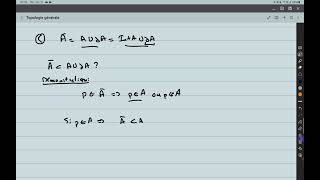 Topologie générale
c) Ā = A ∪ ∂A = Int A ∪ ∂A
Ā ⊂ A ∪ ∂A ?
Démonstration:
p ∈ Ā ⇒ p ∈ A ou p ∉ A
Si p ∈ A ⇒ Ā ⊂ A